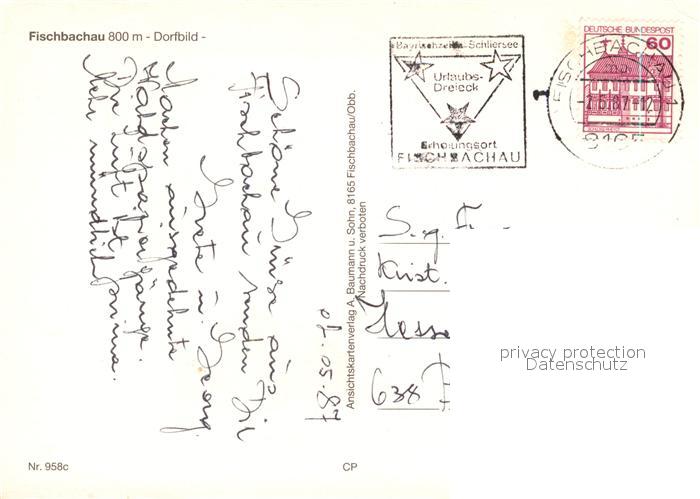 Fischbachau 800 m - Dorfbild -
Schöne Grüße aus
Fischbachau senden Dir
Grete u. Georg.
Machen ausgedehnte
Waldspaziergänge.
Die Luft ist prima.
Mehr mündlich
07.05.87
Ansichtskartenverlag A. Baumann u. Sohn, 8165 Fischbachau/Obb.
Nachdruck verboten
Bayrischzell-Schliersee
Urlaubs-
Dreieck
Erholungsort
FISCHBACHAU
DEUTSCHE BUNDESPOST
60
FISCHBACHAU 1
-7.5.87-12
8165
S.g.
Krist.
Hesse
638
privacy protection
Datenschutz
Nr. 958c
CP